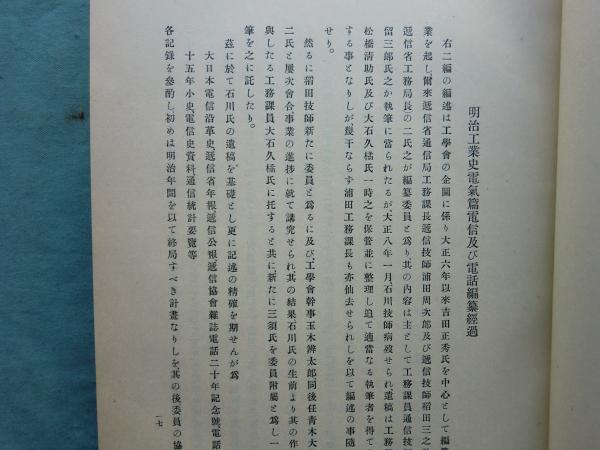 明治工業史電氣篇電信及び電話編纂經過
右二編の編述は工學會の企圖に係り大正六年以來吉田正秀氏を中心として編
業を起し、爾來遞信省通信局工務課長遞信技師浦田周次郎及び遞信技師稻田三之
遞信省工務局長の二氏之が編纂委員と爲り其の內容は主として工務課員通信技
留三郎氏之か執筆に當られたるが大正八年一月石川技師病歿せられ遺稿は工務
松橋淸助氏及び大石久橘氏一時之を保管並に整理し追て適當なる執筆者を得て
する事となりしが、幾干ならず浦田工務課長も亦仙去せられしを以て編述の事隨
せり。
然るに稻田技師新たに委員と爲るに及び工學會幹事玉木辨太郎同後任靑木大
二氏と屢次會合事業の進捗に就て講究せられ其の結果石川氏の生前より其の作
與したる工務課員大石久橘氏に托すると共に新たに三須氏を委員附屬と爲し一
筆を之に託したり。
玆に於て石川氏の遺稿を基礎とし更に記述の精確を期せんが爲
大日本電信沿革史、遞信省年報遞信公報遞信協會雜誌電話二十年記念號、電話
十五年小史、電信史資料通信統計要覽等
各記錄を參酌し、初めは明治年間を以て終局すべき計畫なりしを其の後委員の協
一七